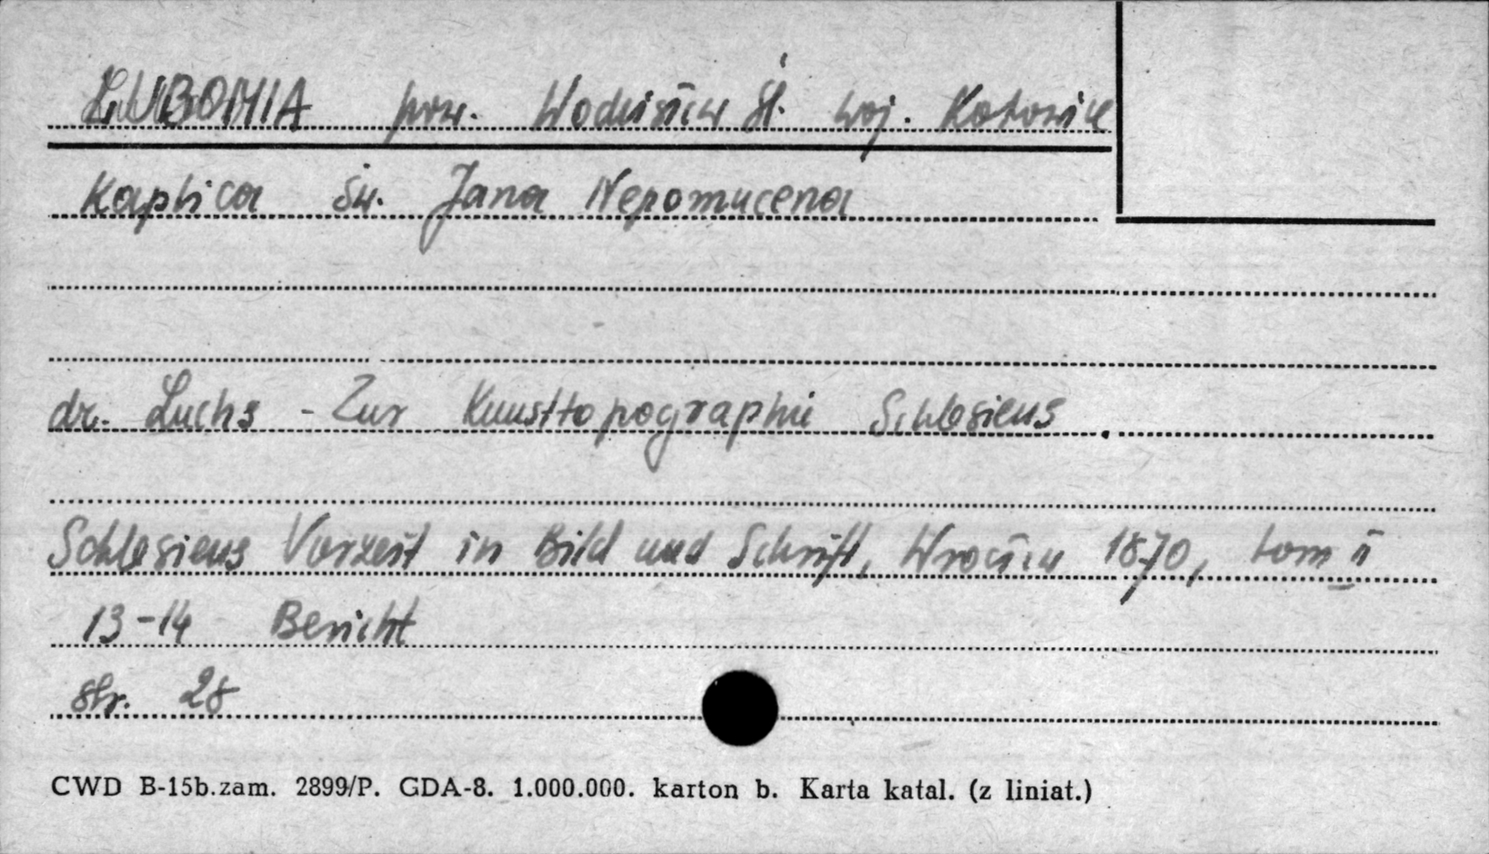 LUBOMIA pow. Wodzisław Śl. woj. Katowice
Kaplica św. Jana Nepomucena
dr. Luchs - Zur Kunsttopographie Schlesiens.
Schlesiens Vorzeit in Bild und Schrift, Wrocław 1870, tom II
13-14 Bericht
str. 28
CWD B-15b.zam. 2899/P. GDA-8. 1.000.000. karton b. Karta katal. (z liniat.)